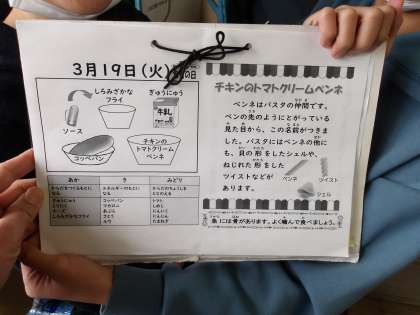 3月19日(火)
の日
しろみざかな
フライ
ぎゅうにゅう
牛乳
ソース
コッペパン
チキンの
トマトクリーム
ペンネ
あか
き
みどり
コッペパン
マカロニ
あぶら
トマト
しめじ
にんじん
にんにく
チキンのトマトクリームペンネ
ペンネはパスタの仲間です。
ペンの先のようにとがっている
見た目から、この名前がつきま
した。パスタにはペンネの他に
も、貝の形をしたシェルや、
ねじれた形をした
ツイストなどが
あります。
ペンネ
ツイスト
シェル
魚には骨があります。よく噛んで食べましょう。